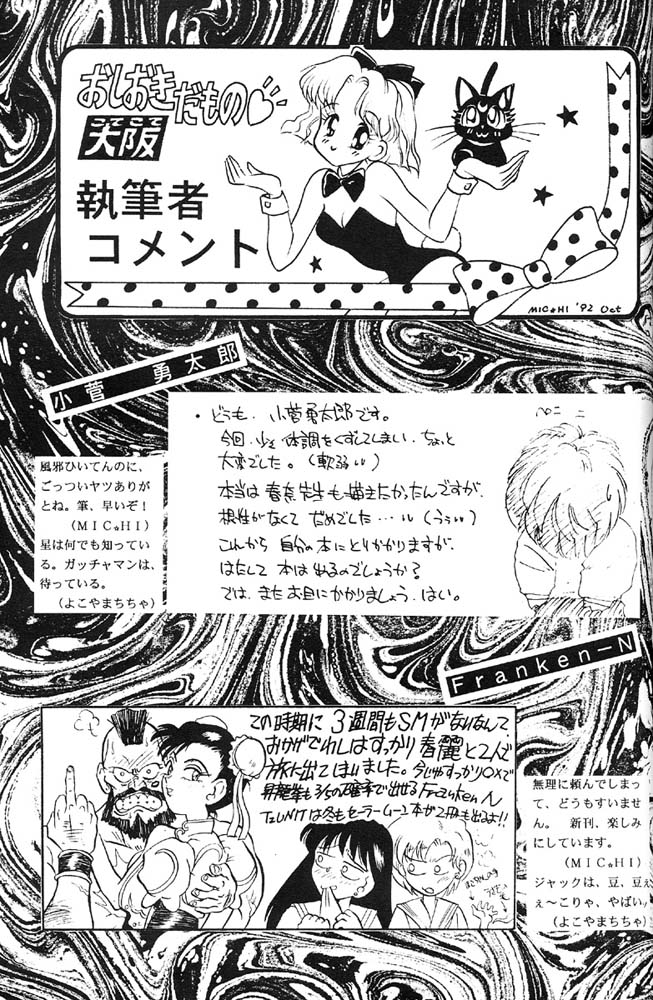 おしおきだもの♡
こてこて
大阪
執筆者
コメント
MIC☆HI '92 Oct
小菅 勇太郎
・どうも、小菅勇太郎です。
今回、少々体調をくずしてしまい、ちょっと
大変でした。(軟弱い)
本当は春奈先生も描きたかったんですが、
根性がなくてだめでした…いい(うぅい)
これから自分の本にとりかかりますが、
はたして本は出るのでしょうか?
では、またお目にかかりましょう。はい。
ペコ
風邪ひいてんのに、
ごっついヤツありが
とね。筆、早いぞ!
(MIC☆HI)
星は何でも知ってい
る。ガッチャマンは、
待っている。
(よこやまちちゃ)
Franken-N
この時期に3週間もSMがないなんて
おかげでわしはすっかり春麗と2人で
旅に出てしまいました。今じゃすっかり○×で
昇龍拳も3/5の確率で出せるFranken N
無理に頼んでしまっ
て、どうもすいませ
ん。 新刊、楽しみ
にしています。
(MIC☆HI)
ジャックは、豆、豆ぇ
ぇ~こりゃ、やばい。
(よこやまちちゃ)